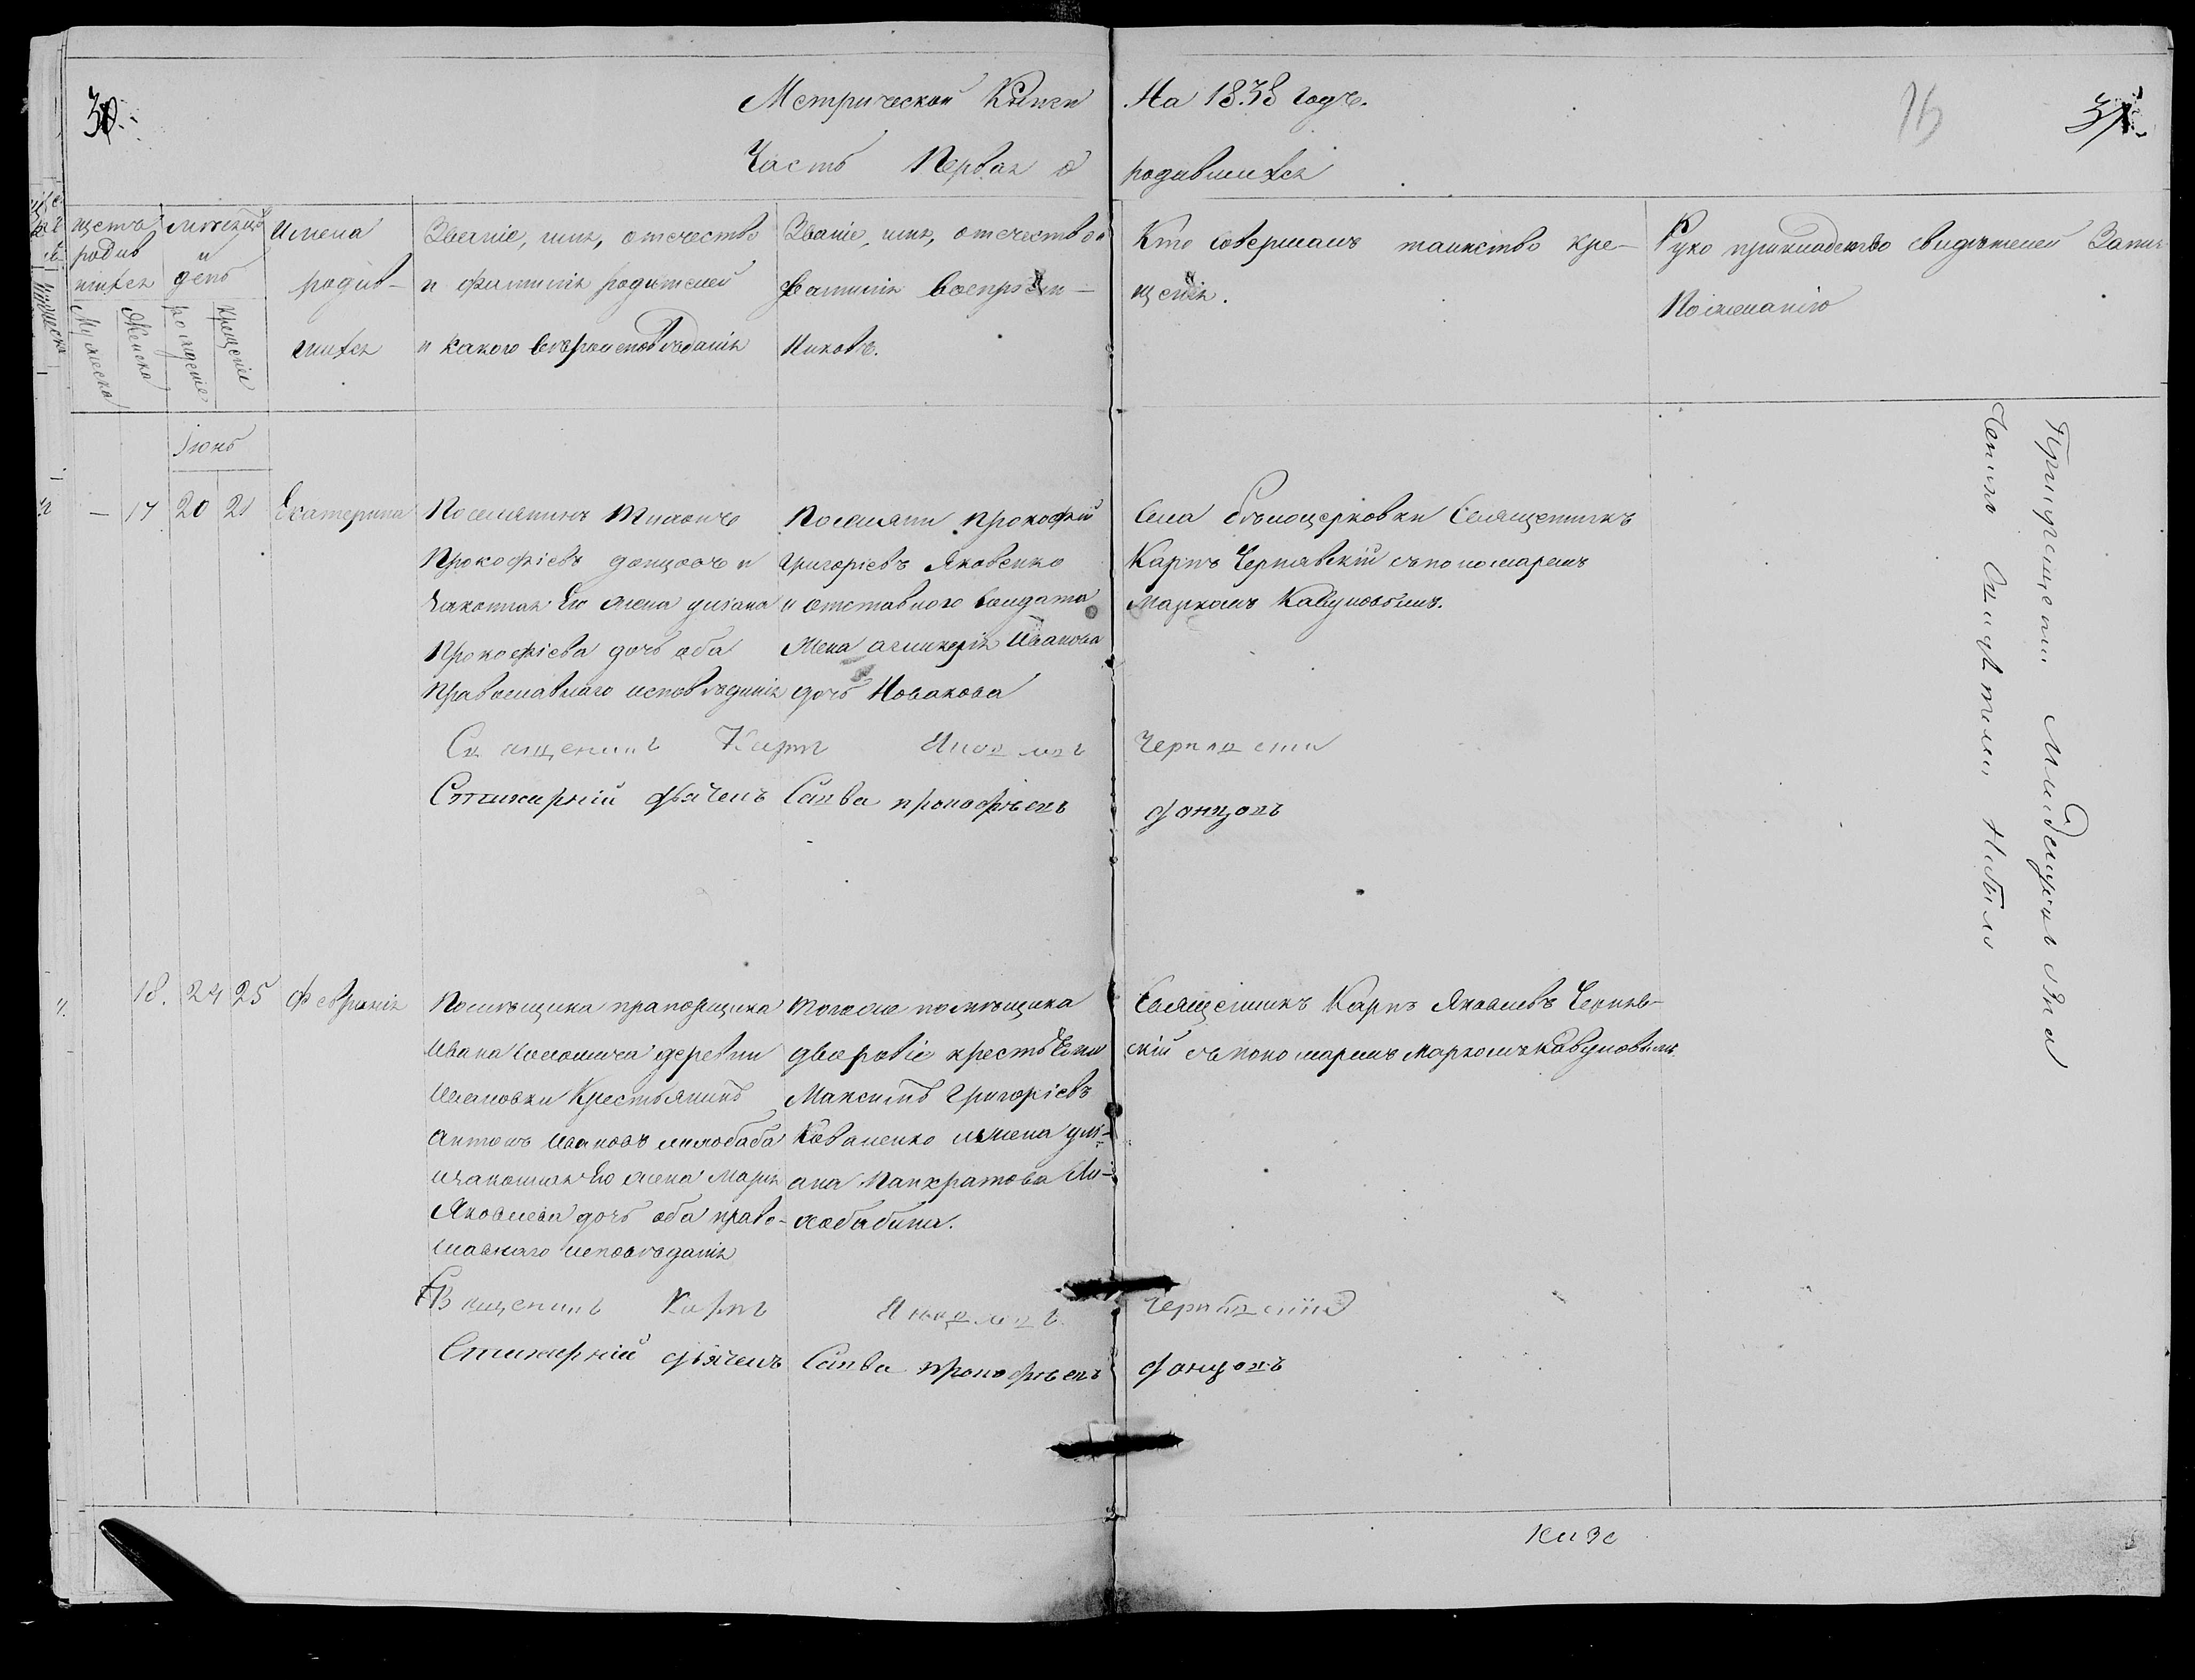 Метрической Книги На 1838 годъ.
Часть Первая о родившихся
щетъ родив шихся
мѣсяцъ и день
Имена родив- шихся
Званіе, имя, отечество и фамилія родителей и какого вѣроисповѣданія
Званіе, имя, отечество и фамилія воспріем- никовъ.
Кто совершалъ таинство кре- щенія.
Руко прикладство свидѣтелей Запи
По желанію
Мужеска
Женска
рожденіе
Крещеніе
Іюнь
— 17 20 21 Екатерина
Поселянинъ Тихонъ
Прокофіевъ донцовъ и
законная Его жена уліана
Прокофіева дочь оба
Православнаго исповѣданія
Поселяни Прокофій
Григоріевъ Яковенко
и отставного солдата
Жена Ивановна
дочь Новакова
Села бѣлоцерковки Священникъ
Карпъ Чернявскій съ пономаремъ
Маркомъ Кавуновымъ.
Священникъ Карпъ Яковлевъ Чернявскій
Стихарній дьячекъ Савва прокофьевъ донцовъ
18. 24 25 Февронія
Помѣщика прапорщика
Ивана деревни
Ивановки Крестьянинъ
Антонъ Ивановъ милобаба
изаконная Его жена Марія
Яковлева дочь оба право-
славнаго исповѣданія
Тогоже помѣщика
дворовіе крестьяни
Максимъ Григоріевъ
Коваленко ижена улі-
ана Панкратова Ми-
лобабина.
Священникъ Карпъ Яковлевъ Черняв-
скій съ пономаремъ Маркомъ Кавуновымъ
Священникъ Карпъ Яковлевъ Чернявскій
Стихарній дьячекъ Савва прокофьевъ донцовъ
При крещеніи Младенцовъ
Свидѣтели Небыло